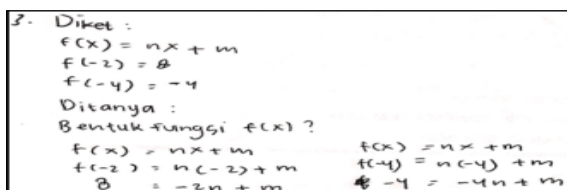 3. Diket :
f(x) = nx + m
f(-2) = 8
f(-4) = -4
Ditanya :
Bentuk fungsi f(x) ?
f(x) = nx + m
f(-2) = n(-2) + m
8 = -2n + m
f(x) = nx + m
f(-4) = n(-4) + m
-4 = -4n + m